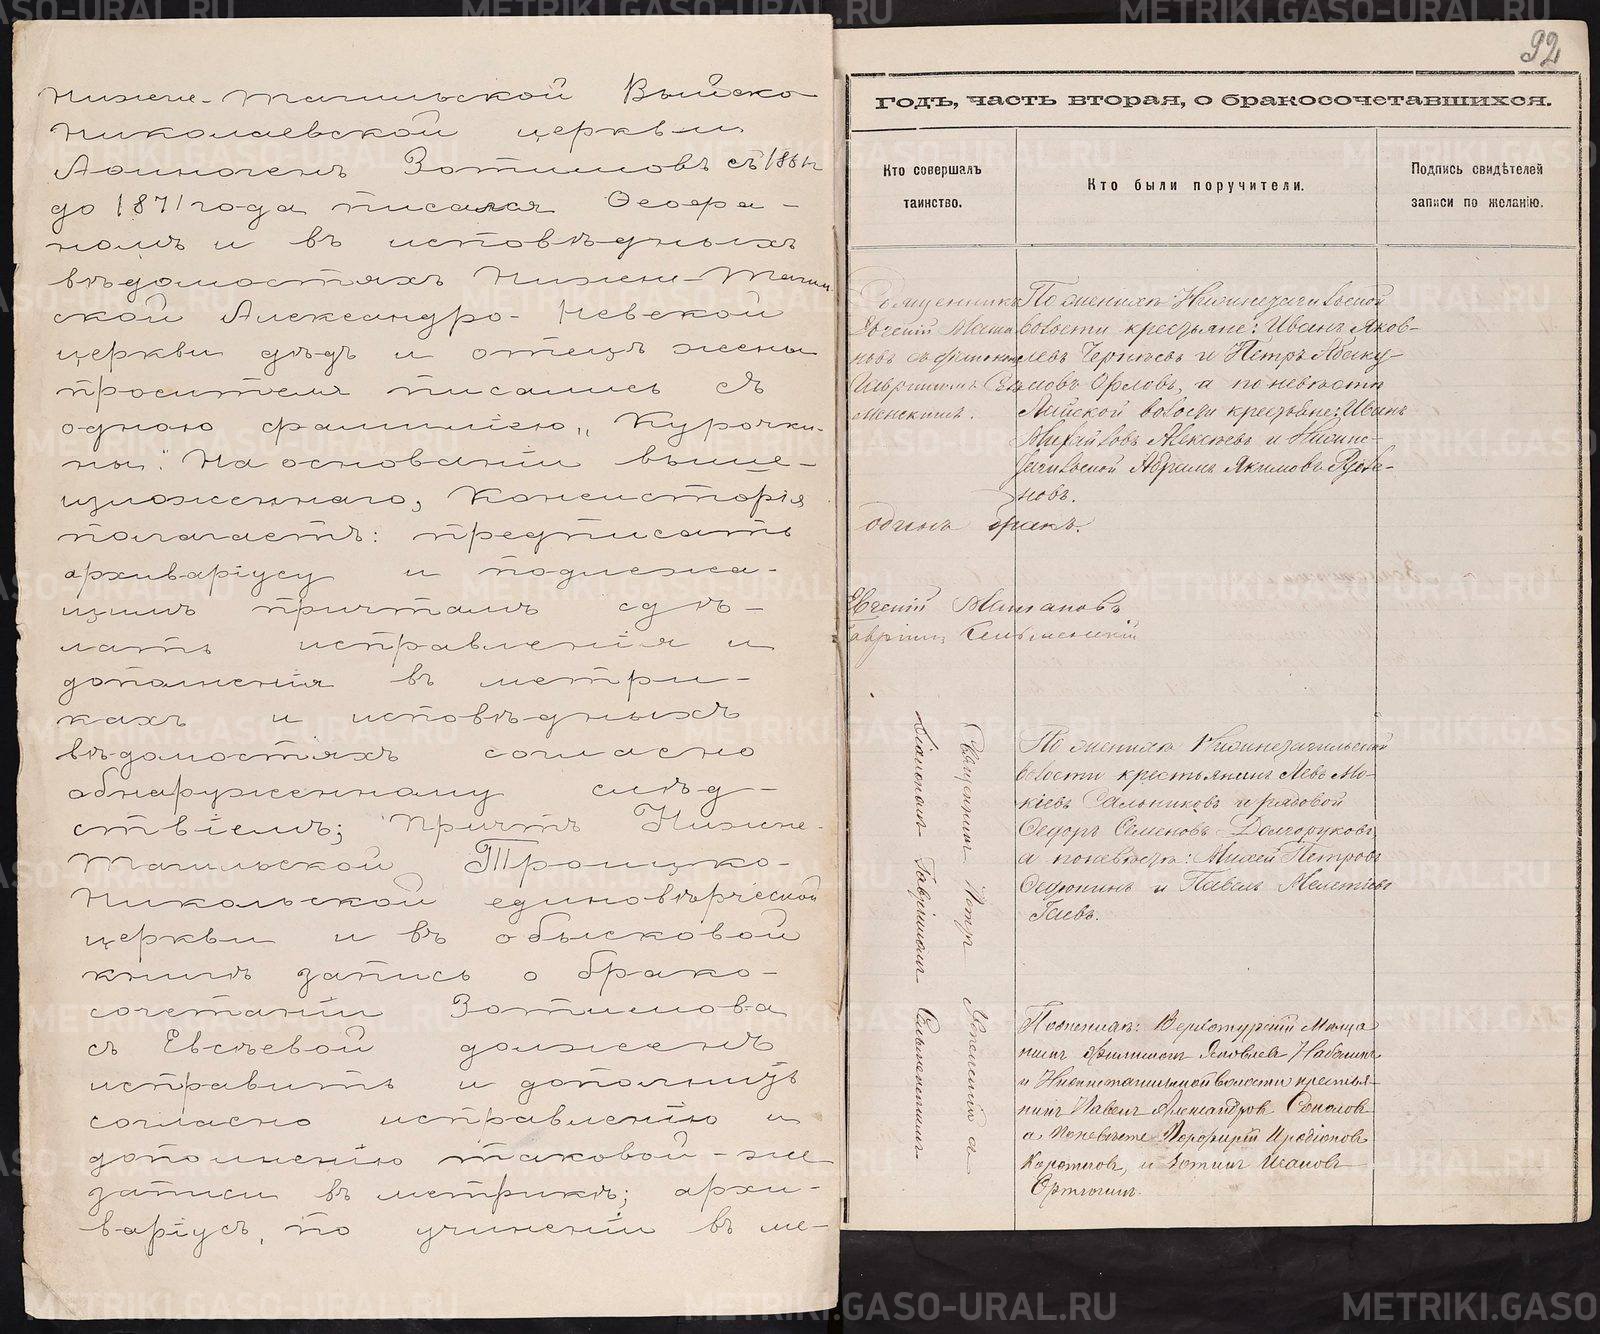 Нижне-Тагильской Выйско
Николаевской церкви
Зотимовъ съ 1861
до 1871 года писался Ѳеофа-
номъ и въ исповѣдныхъ
вѣдомостяхъ Нижне-Тагил
ской Александро-Невской
церкви дѣдъ и отецъ жены
просителя писались съ
одною фамиліею „Курочки-
ны". На основаніи выше-
изложеннаго, Консисторія
полагаетъ: предписать
архиваріусу и подлежа-
щимъ причтамъ сдѣ-
лать исправленія и
дополненія въ метри-
кахъ и исповѣдныхъ
вѣдомостяхъ согласно
обнаруженному слѣд-
ствіемъ; Причтъ Нижне-
Тагильской Троицко-
Никольской единовѣрческой
церкви и въ обысковой
книгѣ запись о брако-
сочетаніи Зотимова
съ Евсѣевой долженъ
исправить и дополнить
согласно исправленію и
дополненію таковой-же
записи въ метрикѣ; архи-
варіусъ, по учиненіи въ ме-
92
ГОДЪ, ЧАСТЬ ВТОРАЯ, О БРАКОСОЧЕТАВШИХСЯ.
Кто совершалъ
таинство.
Кто были поручители.
Подпись свидѣтелей
записи по желанію.
Священникъ
Евгеній Маша
новъ съ
Гавріиломъ Сель
менскимъ.
По женихѣ: Нижнетагильской
волости крестьяне: Иванъ Яков-
левъ и Петръ Абаку-
мовъ Орловъ, а по невѣстѣ
Лайской волости крестьяне: Иванъ
Михайловъ Алексѣевъ и Нижне-
тагильской Абрамъ Якимовъ
новъ.
одинъ бракъ.
Евгеній Машановъ
Гавріилъ Сельменскій
Священникъ Петръ а
Діаконъ Гавріилъ Сельменскій
По женихѣ Нижнетагильской
волости крестьянинъ Левъ Мо-
кіевъ Сальниковъ и рядовой
Ѳедоръ Семеновъ Долгоруковъ,
а по невѣстѣ: Михей Петровъ
и Павелъ Мелетіевъ
Гаевъ.
По женихѣ: Верхотурскій Мѣща
нинъ Филимонъ Яковлевъ Набатинъ
и Нижнетагильской волости крестья-
нинъ Павелъ Александровъ Соколовъ
а по невѣстѣ Порфирій Иродіоновъ
и Зотикъ Ивановъ